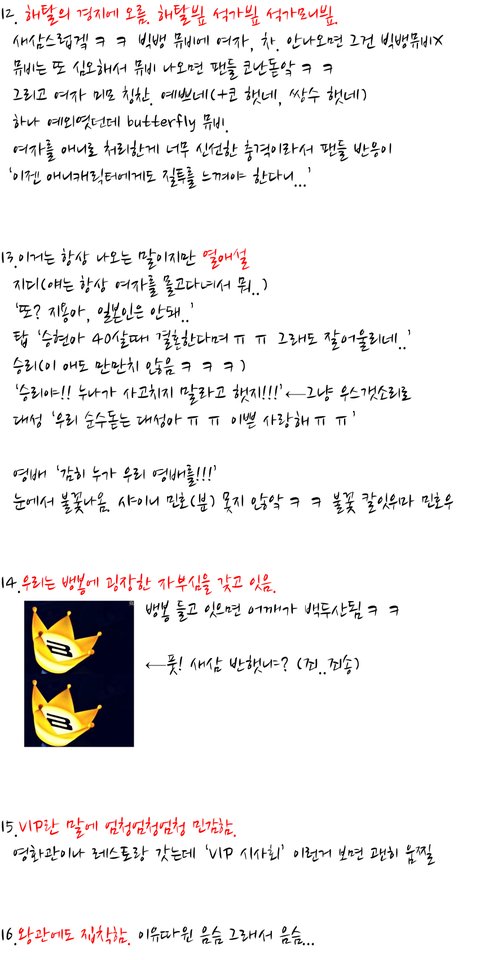 12. 해탈의 경지에 오름. 해탈빞 석가빞 석가모니빞.
새삼스럽겤ㅋㅋ 빅뱅 뮤비에 여자, 차. 안나오면 그건 빅뱅뮤비X
뮤비는 또 심오해서 뮤비 나오면 팬들 코난돋앜ㅋㅋ
그리고 여자 미모 칭찬. 예쁘네(+코 했네, 쌍수 했네)
하나 예외였던데 butterfly 뮤비.
여자를 애니로 처리한게 너무 신선한 충격이라서 팬들 반응이
'이젠 애니캐릭터에게도 질투를 느껴야 한다니...'
13.이거는 항상 나오는 말이지만 열애설
지디(얘는 항상 여자를 몰고다녀서 뭐..)
'또? 지용아, 일본인은 안돼..'
탑 '승현아 40살때 결혼한다며ㅠㅠ 그래도 잘어울리네..'
승리(이 애도 만만치 않음ㅋㅋㅋ)
'승리야!! 누나가 사고치지 말라고 했지!!!' ←그냥 우스갯소리로
대성 '우리 순수돋는 대성아ㅠㅠ 이쁜 사랑해ㅠㅠ'
영배 '감히 누가 우리 영배를!!!'
눈에서 불꽃나옴. 샤이니 민호(분) 못지 않앜ㅋㅋ 불꽃 칼있우마 민호우
14.우리는 뱅봉에 굉장한 자부심을 갖고 있음.
뱅봉 들고 있으면 어깨가 백두산됨ㅋㅋ
←풋! 새삼 반했냐? (죄..죄송)
15.VIP란 말에 엄청엄청엄청 민감함.
영화관이나 레스토랑 갔는데 'VIP 시사회' 이런거 보면 괜히 움찔
16.왕관에도 집착함. 이유따윈 음슴 그래서 음슴...